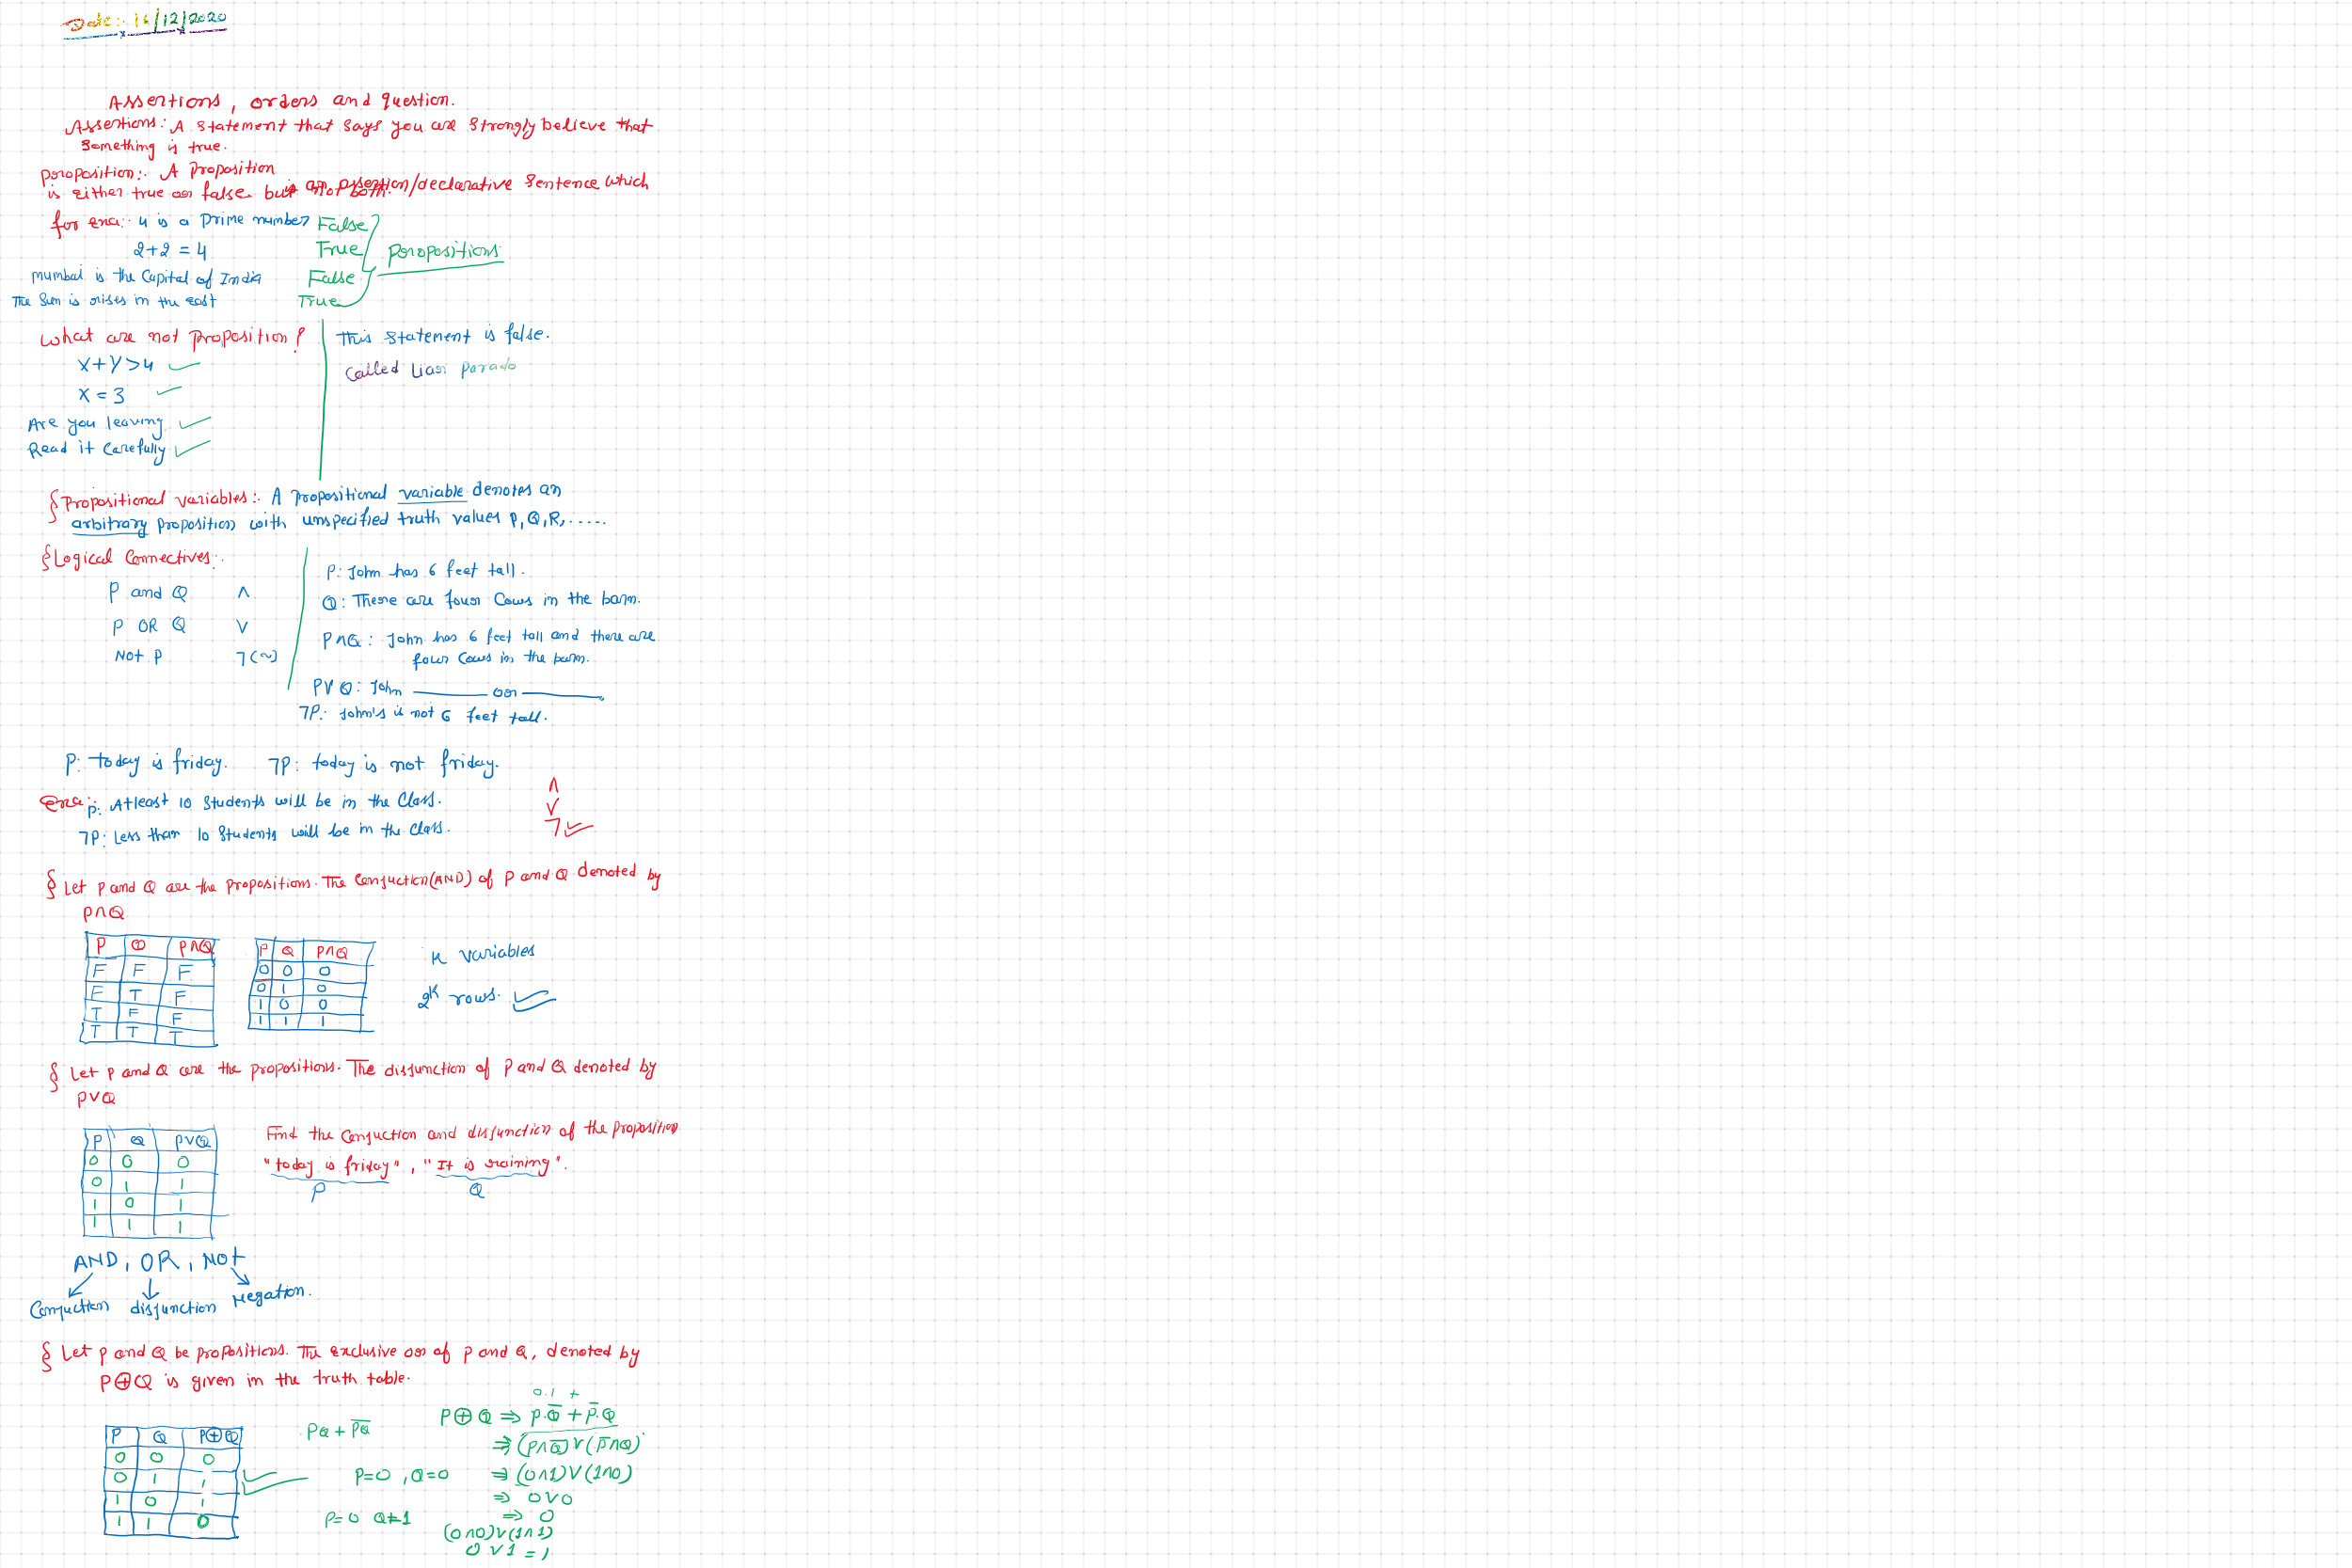 Date:- 16/12/2020
Assertions, orders and question.
Assertions: A statement that says you are strongly believe that
something is true.
proposition:- A proposition
is an assertion/declarative sentence which
is either true or false but not both.
for exa:- 4 is a prime number False
2+2 = 4 True
Propositions
Mumbai is the Capital of India False
The Sun is rises in the east True
What are not proposition?
This statement is false.
Called Liar Parado
x+y>4
x = 3
Are you leaving
Read it Carefully
§ Propositional variables:- A propositional variable denotes an
arbitrary proposition with unspecified truth values P, Q, R, .....
§ Logical Connectives:-
P and Q ∧
P OR Q ∨
Not P ¬(~)
P: John has 6 feet tall.
Q: There are four Cows in the barn.
P∧Q: John has 6 feet tall and there are
four Cows in the barn.
P∨Q: John ______ or ______
¬P: John's is not 6 feet tall.
P: today is friday. ¬P: today is not friday.
Exa:- P: Atleast 10 Students will be in the Class.
¬P: Less than 10 Students will be in the Class.
∧
∨
¬
§ Let P and Q are the propositions. The Conjuction(AND) of P and Q denoted by
P∧Q
P Q P∧Q
F F F
F T F
T F F
T T T
P Q P∧Q
0 0 0
0 1 0
1 0 0
1 1 1
K variables
2^K rows.
§ Let P and Q are the propositions. The disjunction of P and Q denoted by
P∨Q
P Q P∨Q
0 0 0
0 1 1
1 0 1
1 1 1
Find the Conjuction and disjunction of the proposition
"today is friday", "It is raining".
P Q
AND, OR, NOT
Conjuction disjunction Negation.
§ Let P and Q be propositions. The exclusive or of P and Q, denoted by
P⊕Q is given in the truth table.
P Q P⊕Q
0 0 0
0 1 1
1 0 1
1 1 0
PQ + P̅Q̅
0.1 +
P⊕Q ⇒ P.Q̅ + P̅.Q
⇒ (P∧Q̅)∨(P̅∧Q)
P=0, Q=0 ⇒ (0∧1)∨(1∧0)
⇒ 0∨0
⇒ 0
P=0 Q=1
(0∧0)∨(1∧1)
0∨1 = 1